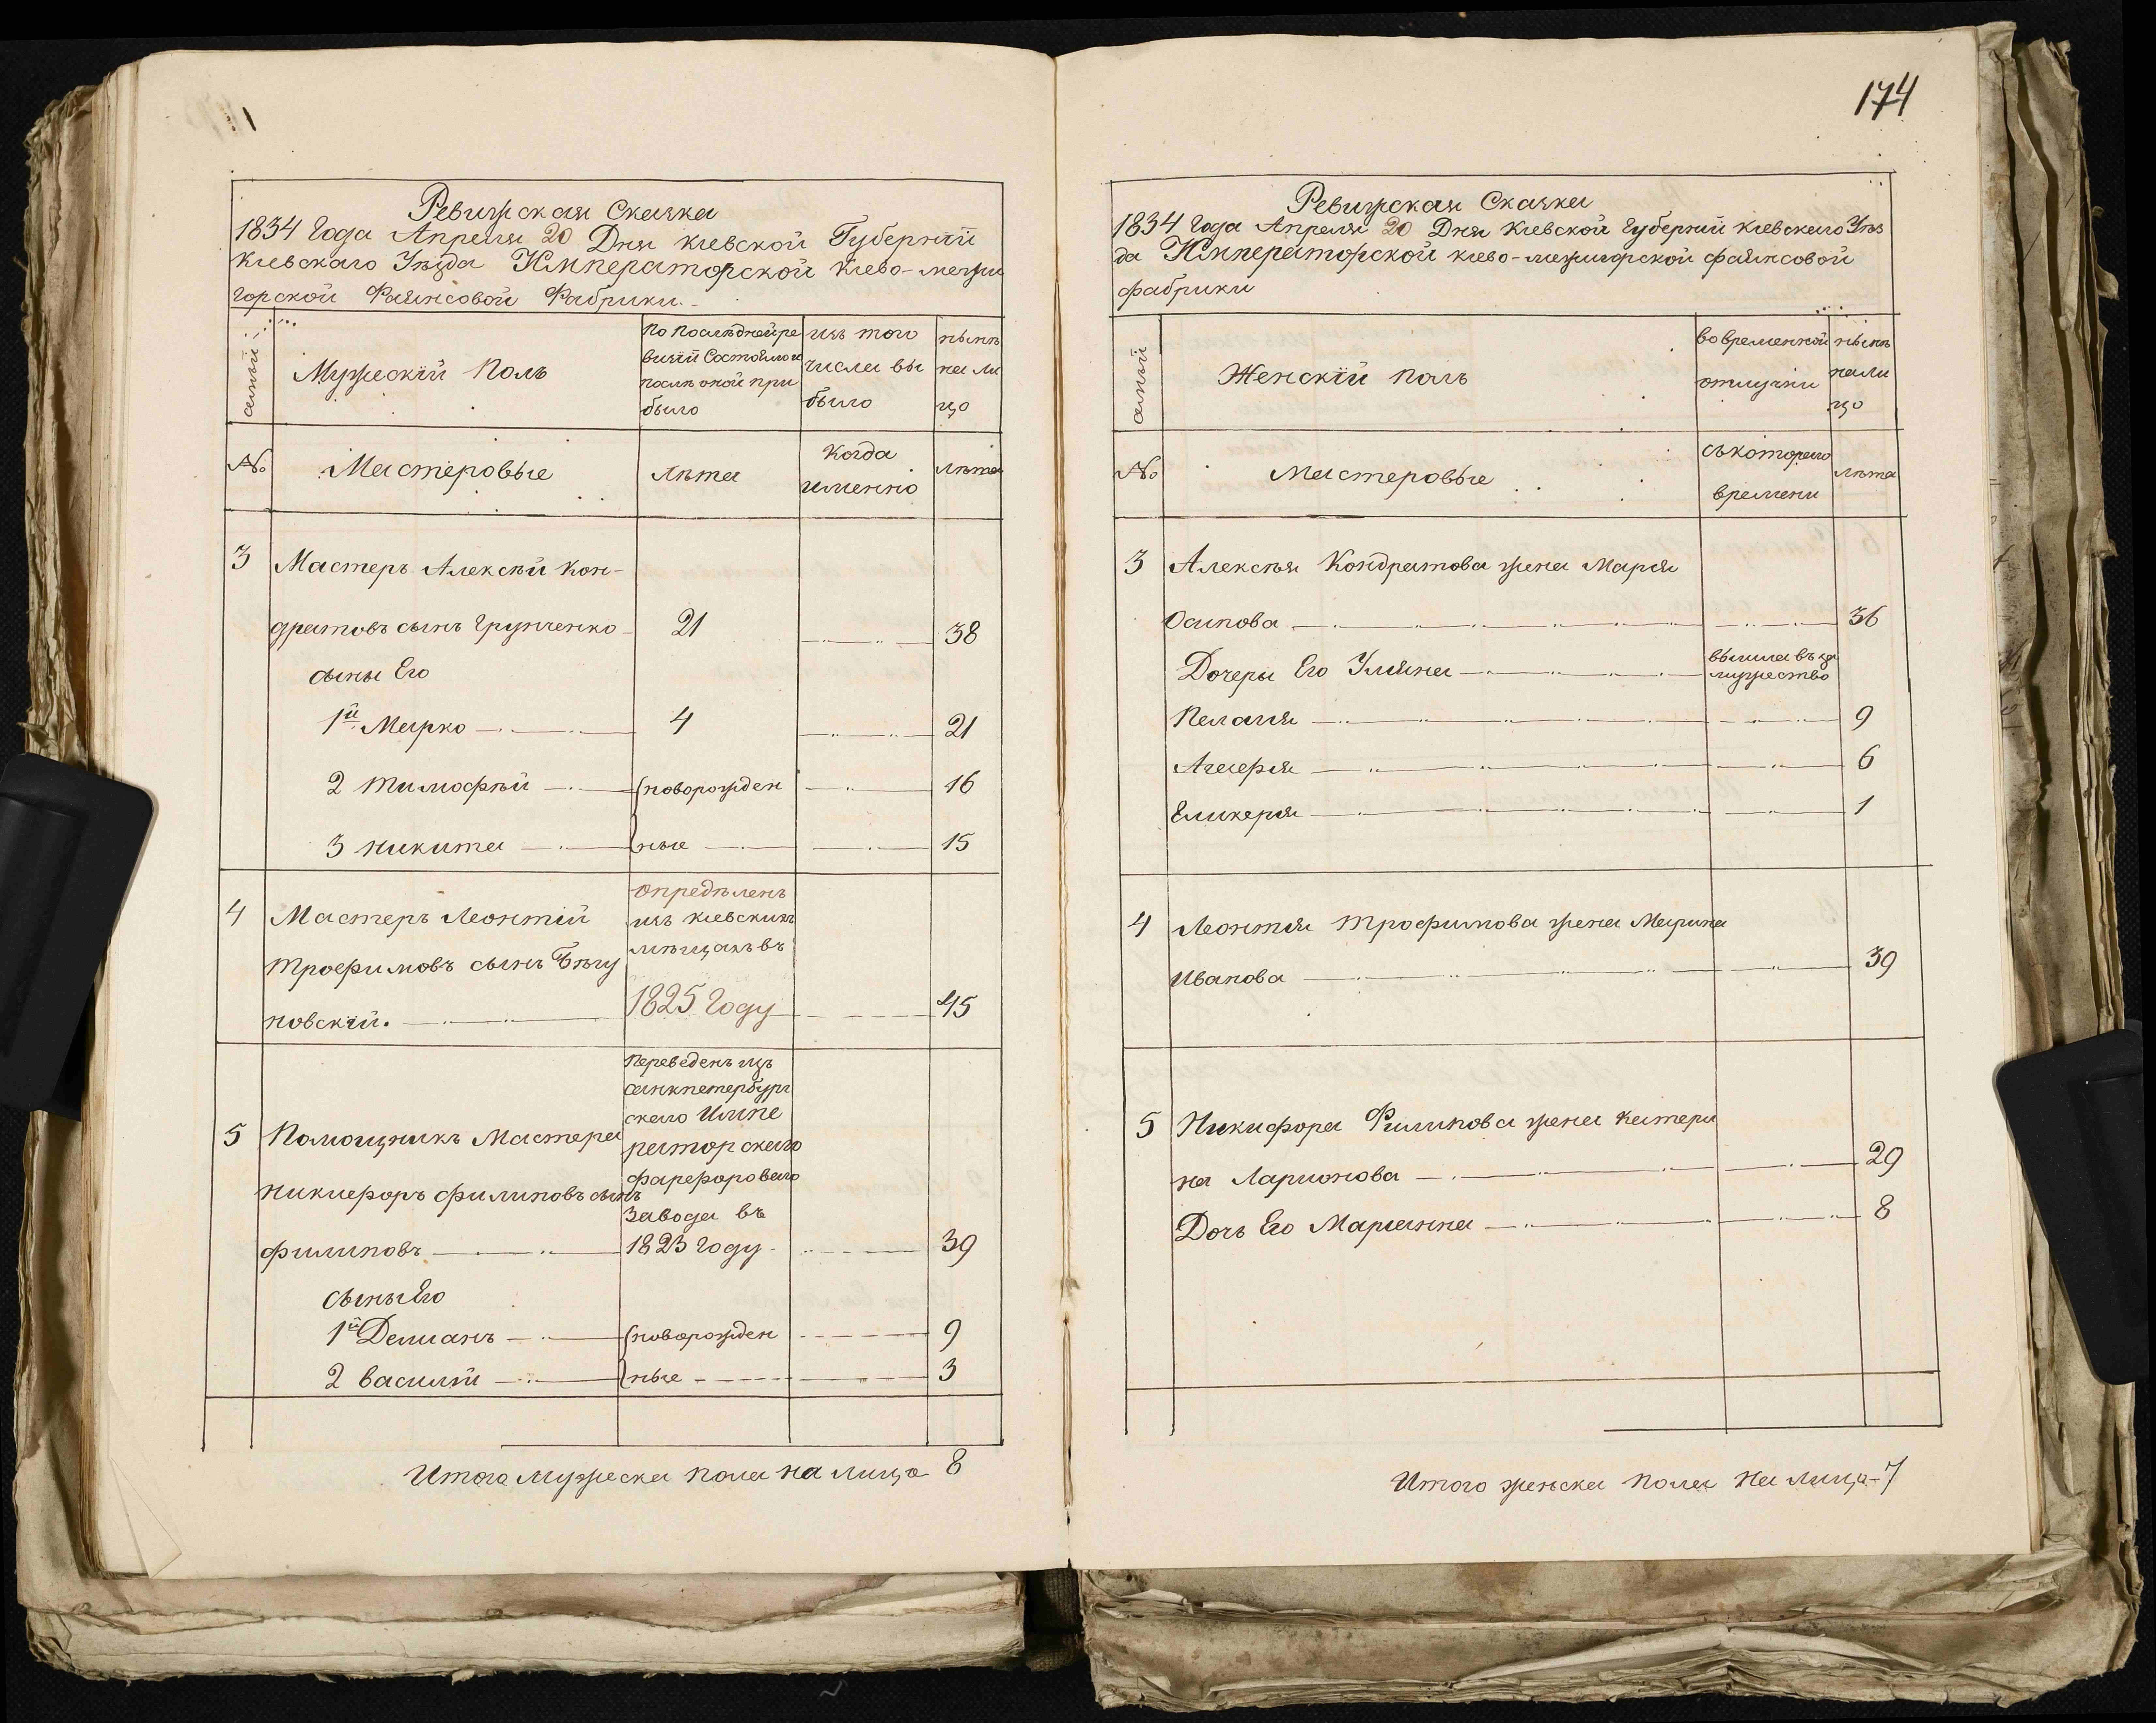 Ревизская Сказка
1834 Года Апреля 20 Дня Киевской Губернїи
Киевскаго Уѣзда Императорской Киево-межи
горской Фаянсовой Фабрики.
Мужескїй Полъ
По послѣдней ре
визїи Состояло и
послѣ оной при
было
изъ того
числа вы
было
нынѣ
на ли
цо
№
Мастеровые
лѣта
Когда
именно
лѣта
3 Мастеръ Алексѣй Кон-
дратовъ сынъ Грунченко 21 38
сыны Его
1й Марко 4 21
2 Тимофѣй новорожден 16
3 Никита ные 15
4 Мастеръ Леонтїй
Трофимовъ сынъ Бѣгу
новскїй.
опредѣленъ
изъ киевскихъ
мѣщанъ въ
1825 Году 45
5 Помощникъ Мастера
Никифоръ Филиповъ сынъ
Филиповъ
Переведенъ изъ
санкпетербург
скаго Импе
раторскаго
фарфороваго
Завода въ
1823 Году 39
сыны Его
1й Демианъ новорожден 9
2 Василїй ные 3
Итого мужеска пола на лицо 8
174
Ревизская Сказка
1834 Года Апреля 20 Дня Киевской Губернїи Киевскаго Уѣз
да Императорской Киево-межигорской фаянсовой
фабрики
Женскїй полъ
во временной
отлучки
нынѣ
на ли
цо
№
Мастеровые
съ котораго
времени
лѣта
3 Алексѣя Кондратова жена Марїя
Осипова 36
Дочеры Его Улияна вышла въ за
мужество
Пелагїя 9
Агафїя 6
Гликерїя 1
4 Леонтїя Трофимова жена Марина
Иванова 39
5 Никифора Филипова жена Катери
на Ларионова 29
Дочь Его Марианна 8
Итого женска пола на лицо 7